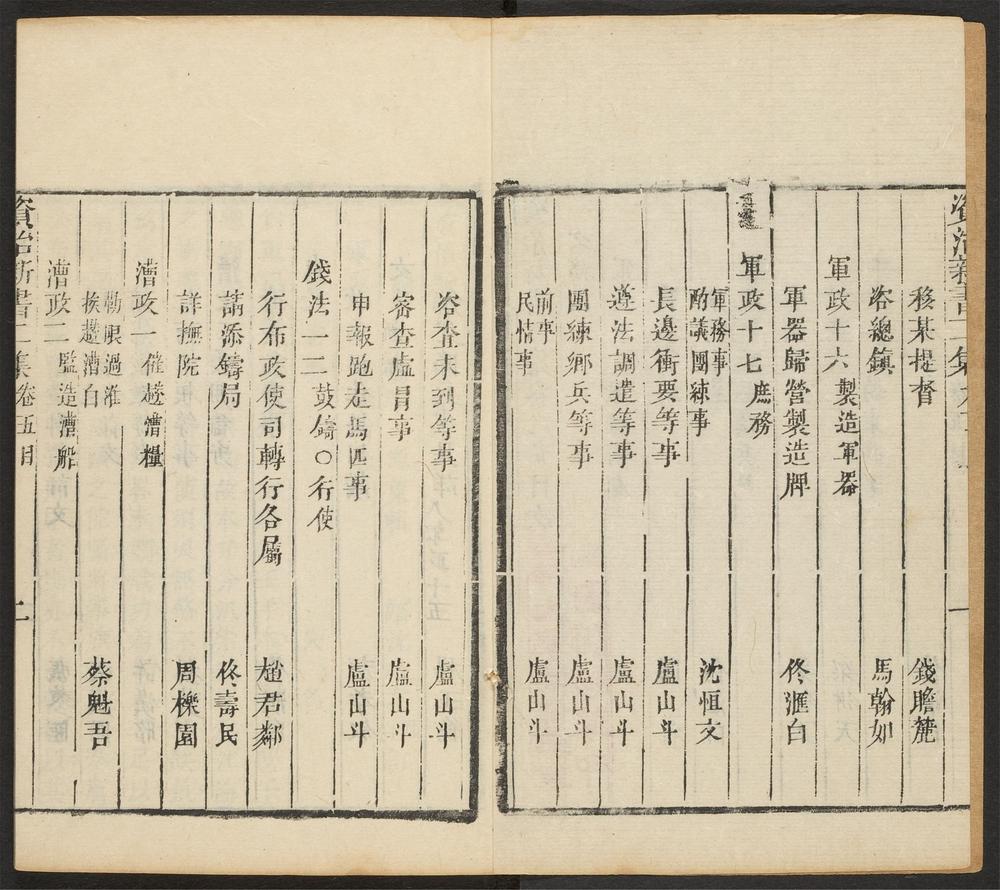 資治新書二集
一
移某提督 錢瞻麓
咨總鎮 馬翰如
軍政十六 製造軍器
軍器歸營製造牌 佟滙白
軍政十七 庶務
軍務事
酌議團練事 沈恒文
長邊衝要等事 盧山斗
遵法調遣等事 盧山斗
團練鄉兵等事 盧山斗
前事
民情事 盧山斗
咨查未到等事 盧山斗
審查虛冒事 盧山斗
申報跑走馬匹事 盧山斗
錢法一二 鼓鑄○行使
行布政使司轉行各屬 趙君鄰
請添鑄局 佟壽民
詳撫院 周櫟園
漕政一 催趲漕糧
勒限過淮
挨趲漕白 蔡魁吾
漕政二 監造漕船
資治新書二集 卷五目
二